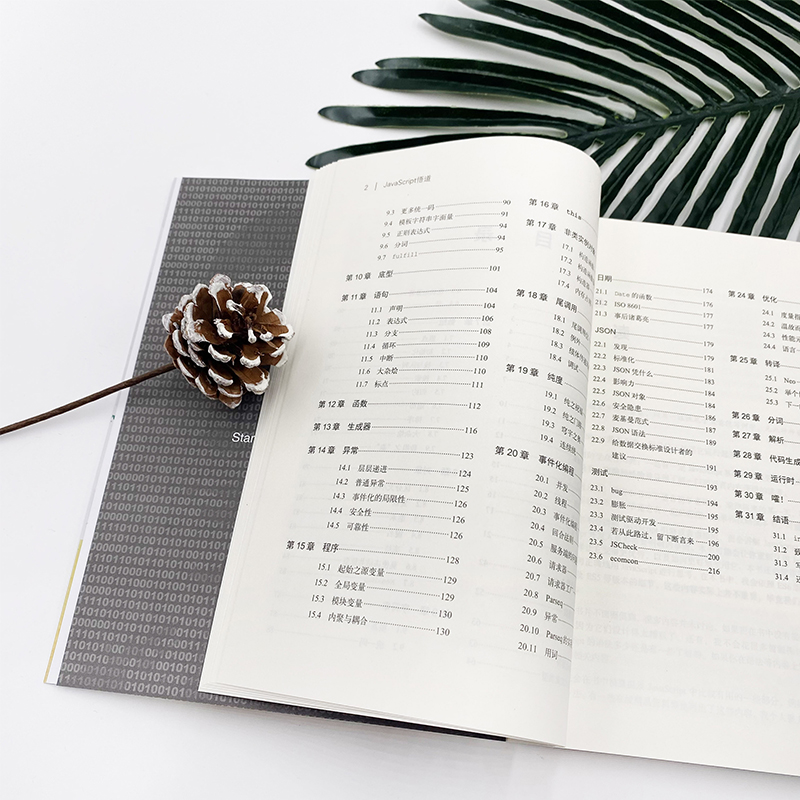 2 | JavaScript悟道
9.3 更多统一码 90
9.4 模板字符串字面量 91
9.5 正则表达式 94
9.6 分词 94
9.7 fulfill 95
第 10 章 底型 101
第 11 章 语句 104
11.1 声明 104
11.2 表达式 106
11.3 分支 108
11.4 循环 109
11.5 中断 110
11.6 大杂烩 110
11.7 标点 111
第 12 章 函数 112
第 13 章 生成器 116
第 14 章 异常 123
14.1 层层递进 124
14.2 普通异常 125
14.3 事件化的局限性 126
14.4 安全性 126
14.5 可靠性 126
第 15 章 程序 128
15.1 起始之源变量 129
15.2 全局变量 129
15.3 模块变量 130
15.4 内聚与耦合 130
第 16 章 this
第 17 章 非类实例对象
17.1
17.2
17.3
17.4
第 18 章 尾调用
18.1 尾调用
18.2 例外
18.3
18.4 调试
第 19 章 纯度
19.1
19.2
19.3
19.4
第 20 章 事件化编程
20.1 并发
20.2 线程
20.3 事件化编程
20.4 回合法则
20.5 服务端的
20.6 请求器
20.7 请求器工厂
20.8 Parseq
20.9 异常
20.10 Parseq 的
20.11 用词
日期 174
21.1 Date 的函数 176
21.2 ISO 8601 177
21.3 事后诸葛亮 177
JSON 179
22.1 发现 179
22.2 标准化 181
22.3 JSON 凭什么 182
22.4 影响力 183
22.5 JSON 对象 184
22.6 安全隐患 186
22.7 麦基曼范式 187
22.8 JSON 语法 189
22.9 给数据交换标准设计者的
建议 191
测试 193
23.1 bug 194
23.2 膨胀 195
23.3 测试驱动开发 195
23.4 若从此路过，留下断言来 196
23.5 JSCheck 200
23.6 ecomcon 216
第 24 章 优化
24.1 度量指
24.2
24.3 性能元
24.4 语言
第 25 章 转译
25.1 Neo
25.2 举个
25.3 下一
第 26 章 分词
第 27 章 解析
第 28 章 代码生成
第 29 章 运行时
第 30 章 嚯！
第 31 章 结语
31.1
31.2
31.3
31.4
Star